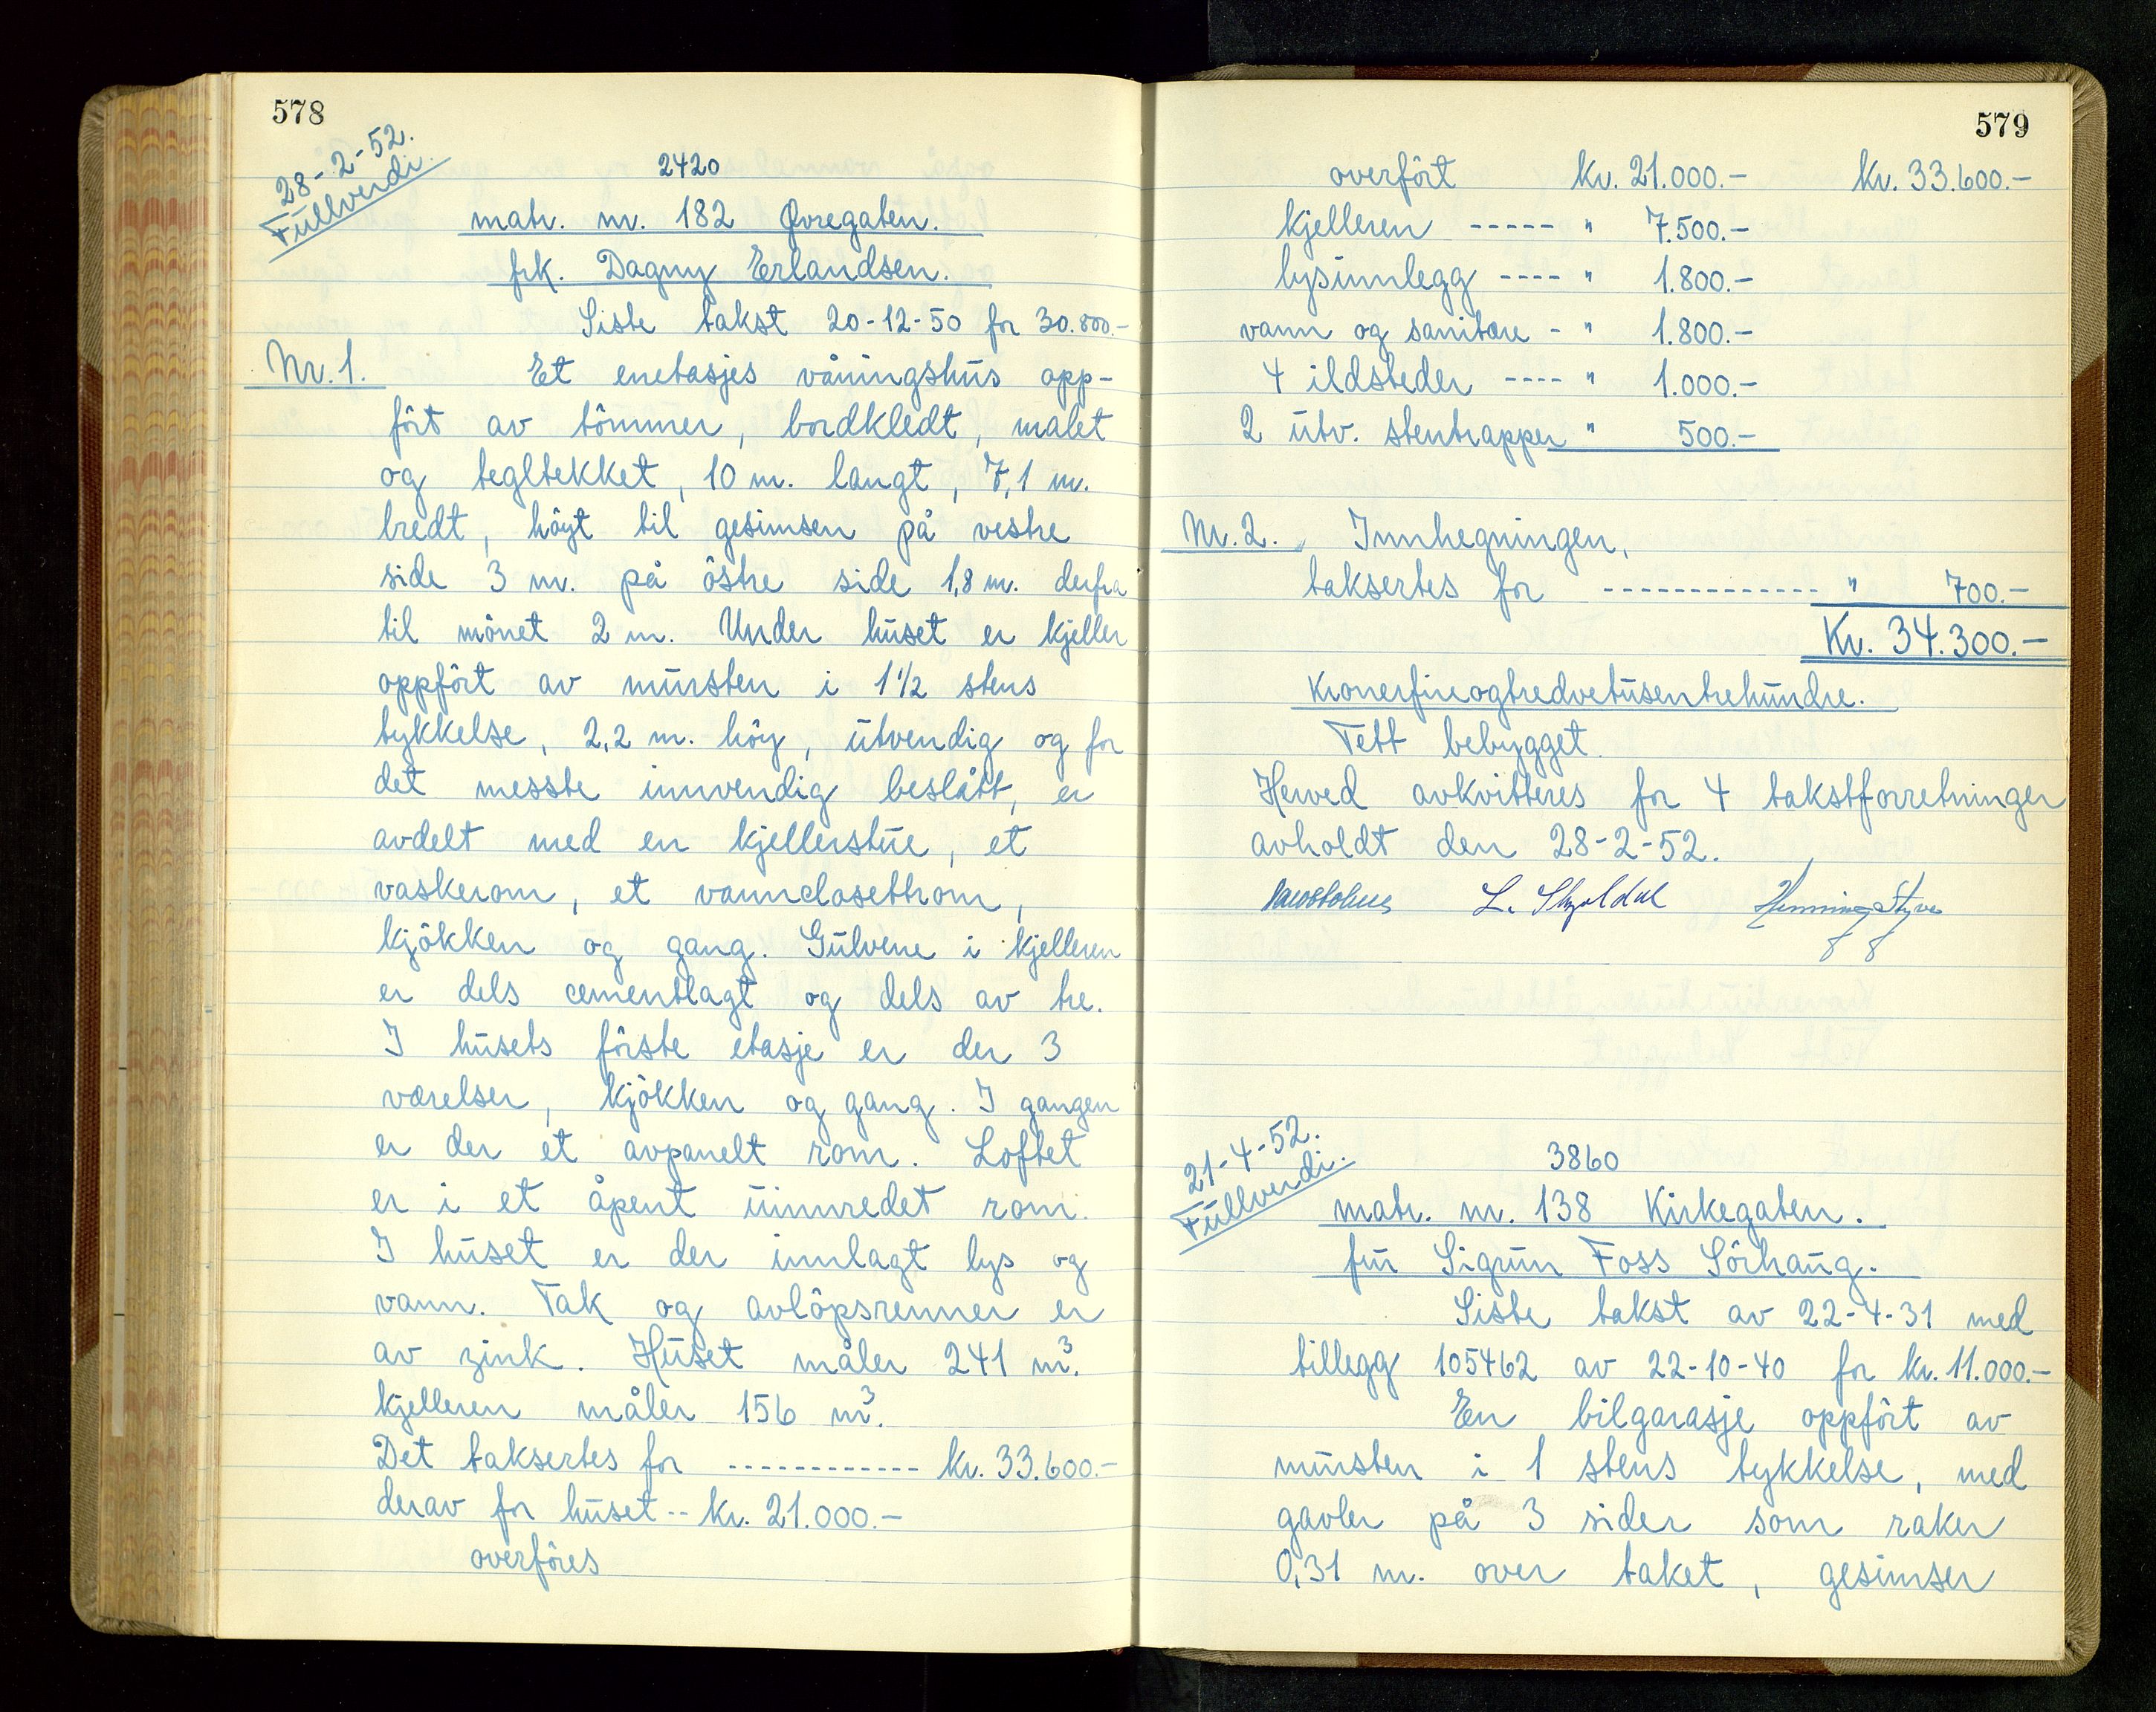 578
28-2-52.
Fullverdi.
2420
matr. nr. 182 Øvregaten.
frk. Dagny Erlandsen.
Siste takst 20-12-50 for 30.800.-
Nr. 1. Et enetasjes våningshus opp-
fört av tömmer, bordkledt, malet
og tegltekket, 10 m. langt, 7,1 m.
bredt, höyt til gesimsen på vestre
side 3 m. på östre side 1,8 m. derfra
til mönet 2 m. Under huset er kjeller
oppfört av mursten i 1 1/2 stens
tykkelse, 2,2 m. höy, utvendig og for
det messte innvendig beslått, er
avdelt med en kjellerstue, et
vaskerom, et vannclosettrom,
kjökken og gang. Gulvene i kjelleren
er dels cementlagt og dels av tre.
I husets förste etasje er der 3
værelser, kjökken og gang. I gangen
er der et avpanelt rom. Loftet
er i et åpent uinnredet rom.
I huset er der innlagt lys og
vann. Tak og avlöpsrenner er
av zink. Huset måler 241 m³.
kjelleren måler 156 m³.
Det taksertes for ------------ kr. 33.600.-
derav for huset -- kr. 21.000.-
overföres
579
overfört kr. 21.000.- kr. 33.600.-
kjelleren ----- " 7.500.-
lysinnlegg ---- " 1.800.-
vann og sanitære - " 1.800.-
4 ildsteder ---- " 1.000.-
2 utv. stentrapper " 500.-
Nr. 2. Innhegningen,
taksertes for ------------- " 700.-
Kr. 34.300.-
Kronerfireogtredvetusentrehundre.
Tett bebygget.
Herved avkvitteres for 4 takstforretninger
avholdt den 28-2-52.
L. Skjoldal Henning Styve
21-4-52.
Fullverdi.
3860
matr. nr. 138 Kirkegaten.
fru Sigrun Foss Sörhaug.
Siste takst av 22-4-31 med
tillegg 105462 av 22-10-40 for kr. 11.000.-
En bilgarasje oppfört av
mursten i 1 stens tykkelse, med
gavler på 3 sider som raker
0,31 m. over taket, gesimser